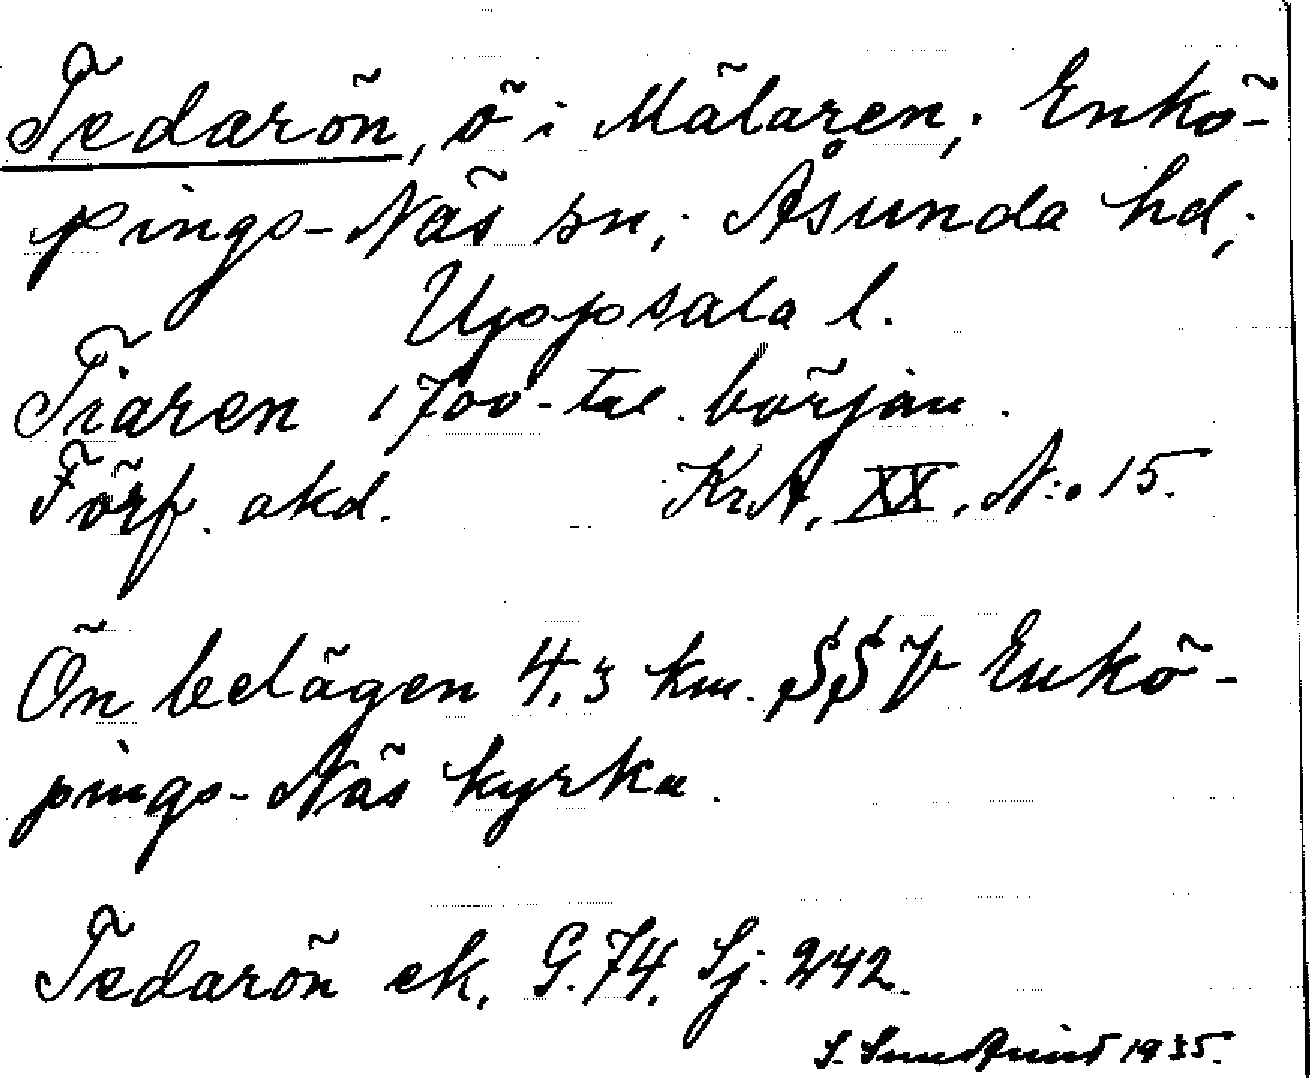 Tedarön, ö i Mälaren; Enkö-
pings-Näs sn; Åsunda hd;
Uppsala l.
Tiaren 1700-tal början.
Förf. okd. KrA, XX, N:o 15.
Ön belägen 4,3 km. SSV Enkö-
pings-Näs kyrka.
Tedarön ek. G. 74. Sj. 242.
S. 1935.